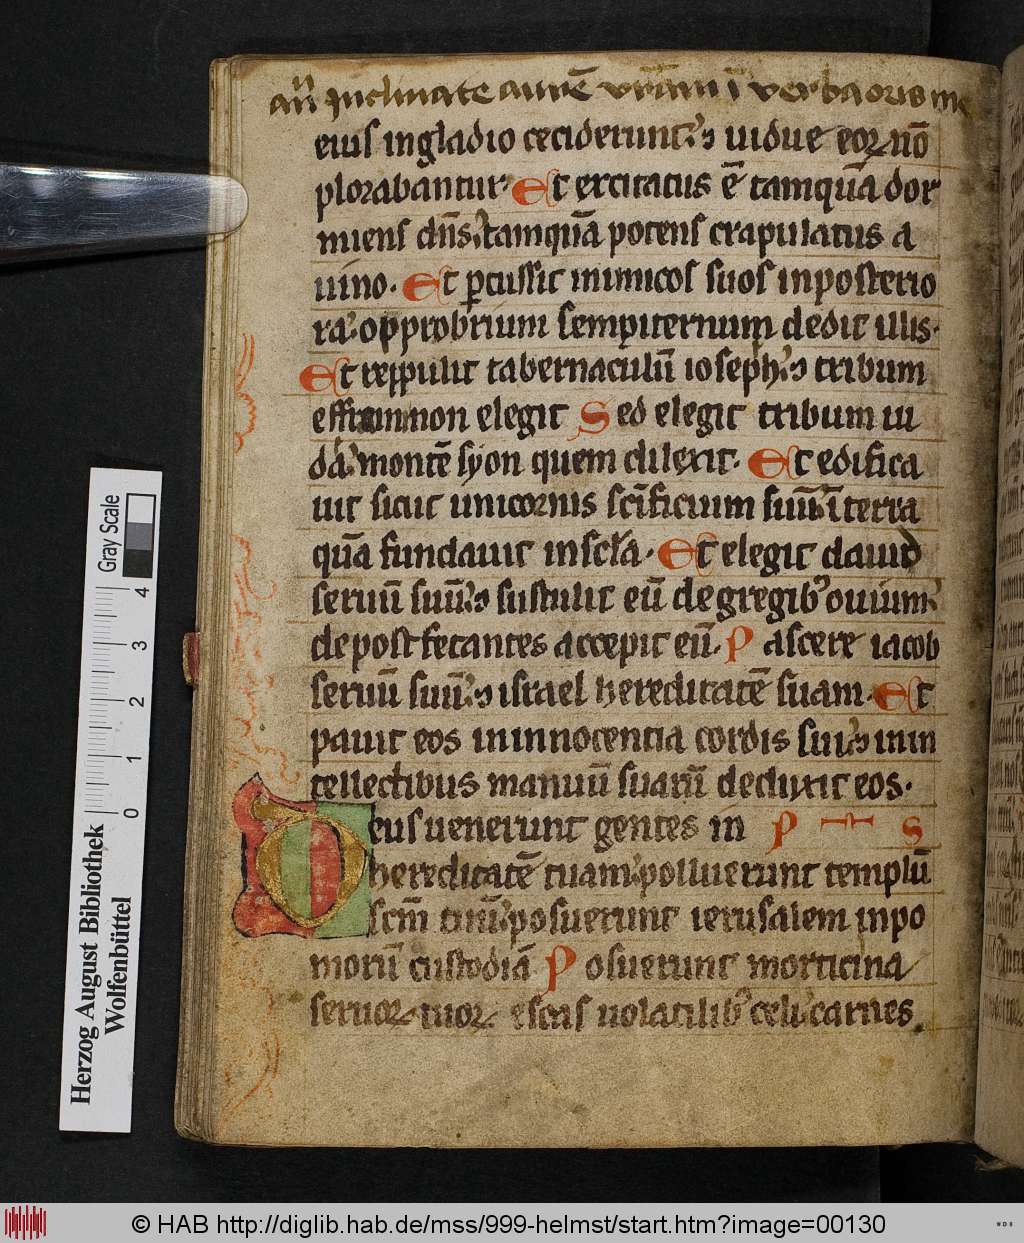 an̄ Inclinate aurē vr̄am ī verba oris mei
eius in gladio ceciderunt: ⁊ uidue eoꝝ nō
plorabantur· Et excitatus ē tamquā dor
miens dn̄s: tamquā potens crapulatus a
uino· Et ꝑcussit inimicos suos in posterio
ra: opprobrium sempiternum dedit illis·
Et reppulit tabernaculū ioseph: ⁊ tribum
effraim non elegit Sed elegit tribum iu
da: montē syon quem dilexit· Et edifica
uit sicut unicornis scīficium suū: ī terra
quā fundauit in scl̄a· Et elegit dauid
seruū suū: ⁊ sustulit eū de gregibꝰ ouium:
de post fetantes accepit eū· Pascere iacob
seruū suū: ⁊ israel hereditatē suam· Et
pauit eos in innocentia cordis sui: ⁊ in in
tellectibus manuū suarū deduxit eos·
Deus uenerunt gentes in P S
hereditatē tuam: polluerunt templū
scm̄ tuū: posuerunt ierusalem in po
morū custodiā Posuerunt morticina
seruoꝝ tuoꝝ escas uolatilibꝰ celi: carnes
Herzog August Bibliothek
Wolfenbüttel
Gray Scale
0 1 2 3 4
© HAB http://diglib.hab.de/mss/999-helmst/start.htm?image=00130